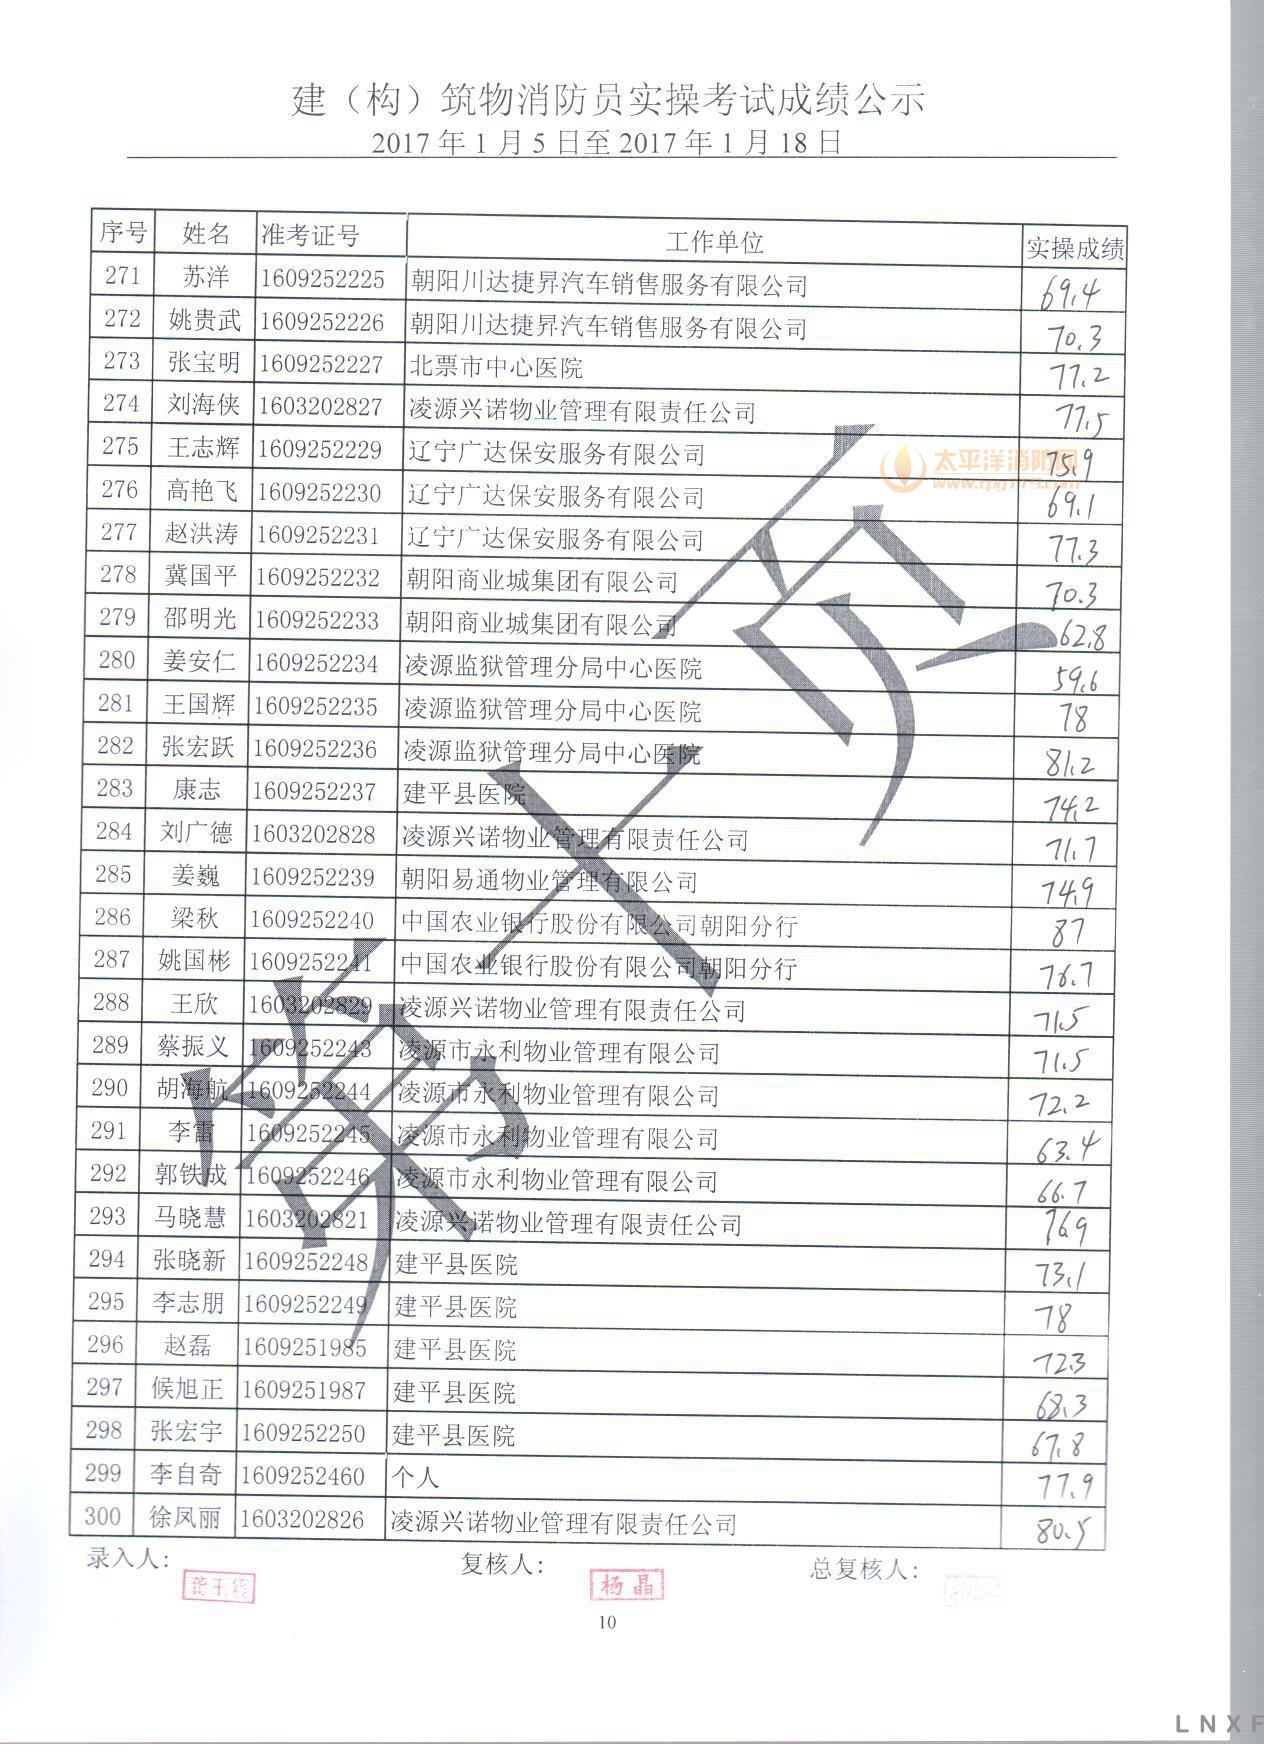 建（构）筑物消防员实操考试成绩公示
2017年1月5日至2017年1月18日
序号 姓名 准考证号 工作单位 实操成绩
271 苏洋 1609252225 朝阳川达捷昇汽车销售服务有限公司 69.4
272 姚贵武 1609252226 朝阳川达捷昇汽车销售服务有限公司 70.3
273 张宝明 1609252227 北票市中心医院 77.2
274 刘海侠 1603202827 凌源兴诺物业管理有限责任公司 77.5
275 王志辉 1609252229 辽宁广达保安服务有限公司 75.9
太平洋消防网
276 高艳飞 1609252230 辽宁广达保安服务有限公司 69.1
277 赵洪涛 1609252231 辽宁广达保安服务有限公司 77.3
278 冀国平 1609252232 朝阳商业城集团有限公司 70.3
279 邵明光 1609252233 朝阳商业城集团有限公司 62.8
280 姜安仁 1609252234 凌源监狱管理分局中心医院 59.6
281 王国辉 1609252235 凌源监狱管理分局中心医院 78
282 张宏跃 1609252236 凌源监狱管理分局中心医院 81.2
283 康志 1609252237 建平县医院 74.2
284 刘广德 1603202828 凌源兴诺物业管理有限责任公司 71.7
285 姜巍 1609252239 朝阳易通物业管理有限公司 74.9
286 梁秋 1609252240 中国农业银行股份有限公司朝阳分行 87
287 姚国彬 1609252241 中国农业银行股份有限公司朝阳分行 76.7
288 王欣 1603202829 凌源兴诺物业管理有限责任公司 71.5
289 蔡振义 1609252243 凌源市永利物业管理有限公司 71.5
290 胡海航 1609252244 凌源市永利物业管理有限公司 72.2
291 李雷 1609252245 凌源市永利物业管理有限公司 63.4
292 郭铁成 1609252246 凌源市永利物业管理有限公司 66.7
293 马晓慧 1603202821 凌源兴诺物业管理有限责任公司 76.9
294 张晓新 1609252248 建平县医院 73.1
295 李志朋 1609252249 建平县医院 78
296 赵磊 1609251985 建平县医院 72.3
297 候旭正 1609251987 建平县医院 68.3
298 张宏宇 1609252250 建平县医院 67.8
299 李自奇 1609252460 个人 77.9
300 徐凤丽 1603202826 凌源兴诺物业管理有限责任公司 80.5
第十页
录入人： 复核人： 总复核人：
杨晶
10
LNXF